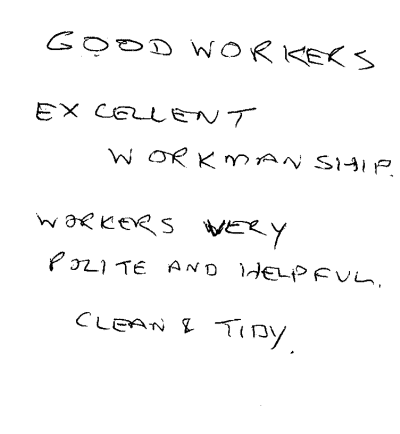 GOOD WORKERS
EXCELLENT
WORKMANSHIP.
WORKERS VERY
POLITE AND HELPFUL.
CLEAN & TIDY.